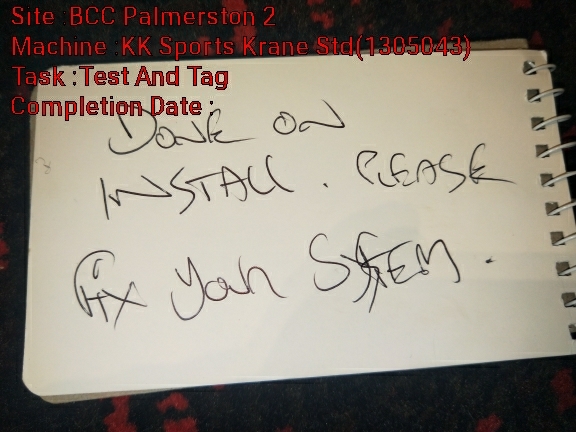 Site :BCC Palmerston 2
Machine :KK Sports Krane Std(1305043)
Task :Test And Tag
Completion Date :
DONE ON
INSTALL. PLEASE
FIX YOUR SYSTEM.